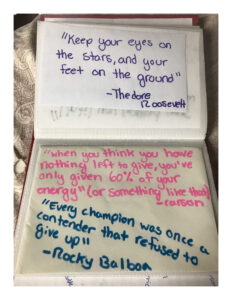 "Keep your eyes on
the stars, and your
feet on the ground"
-Thedore
Roosevelt
"when you think you have
nothing left to give, you've
only given 60% of your
energy" (or something like that)
-carson
"Every champion was once a
contender that refused to
give up"
-Rocky Balboa